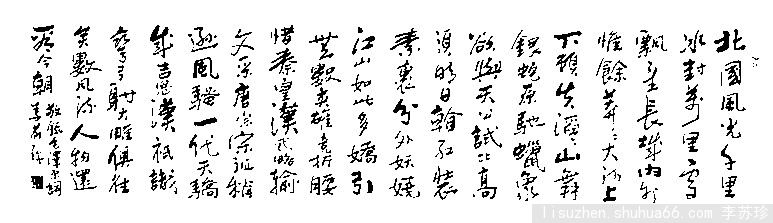 北國風光千里
冰封萬里雪
飄望長城內外
惟餘莽〻大河上
下頓失滔〻山舞
銀蛇原馳蠟象
欲與天公試比高
須晴日看紅裝
素裹分外妖嬈
江山如此多嬌引
無數英雄競折腰
惜秦皇漢武略輸
文采唐宗宋祖稍
遜風騷一代天驕
成吉思漢祇識
彎弓射大雕俱往
矣數風流人物還
看今朝 敬錄毛澤東詞
lisuzhen.shuhua66.com 李苏珍